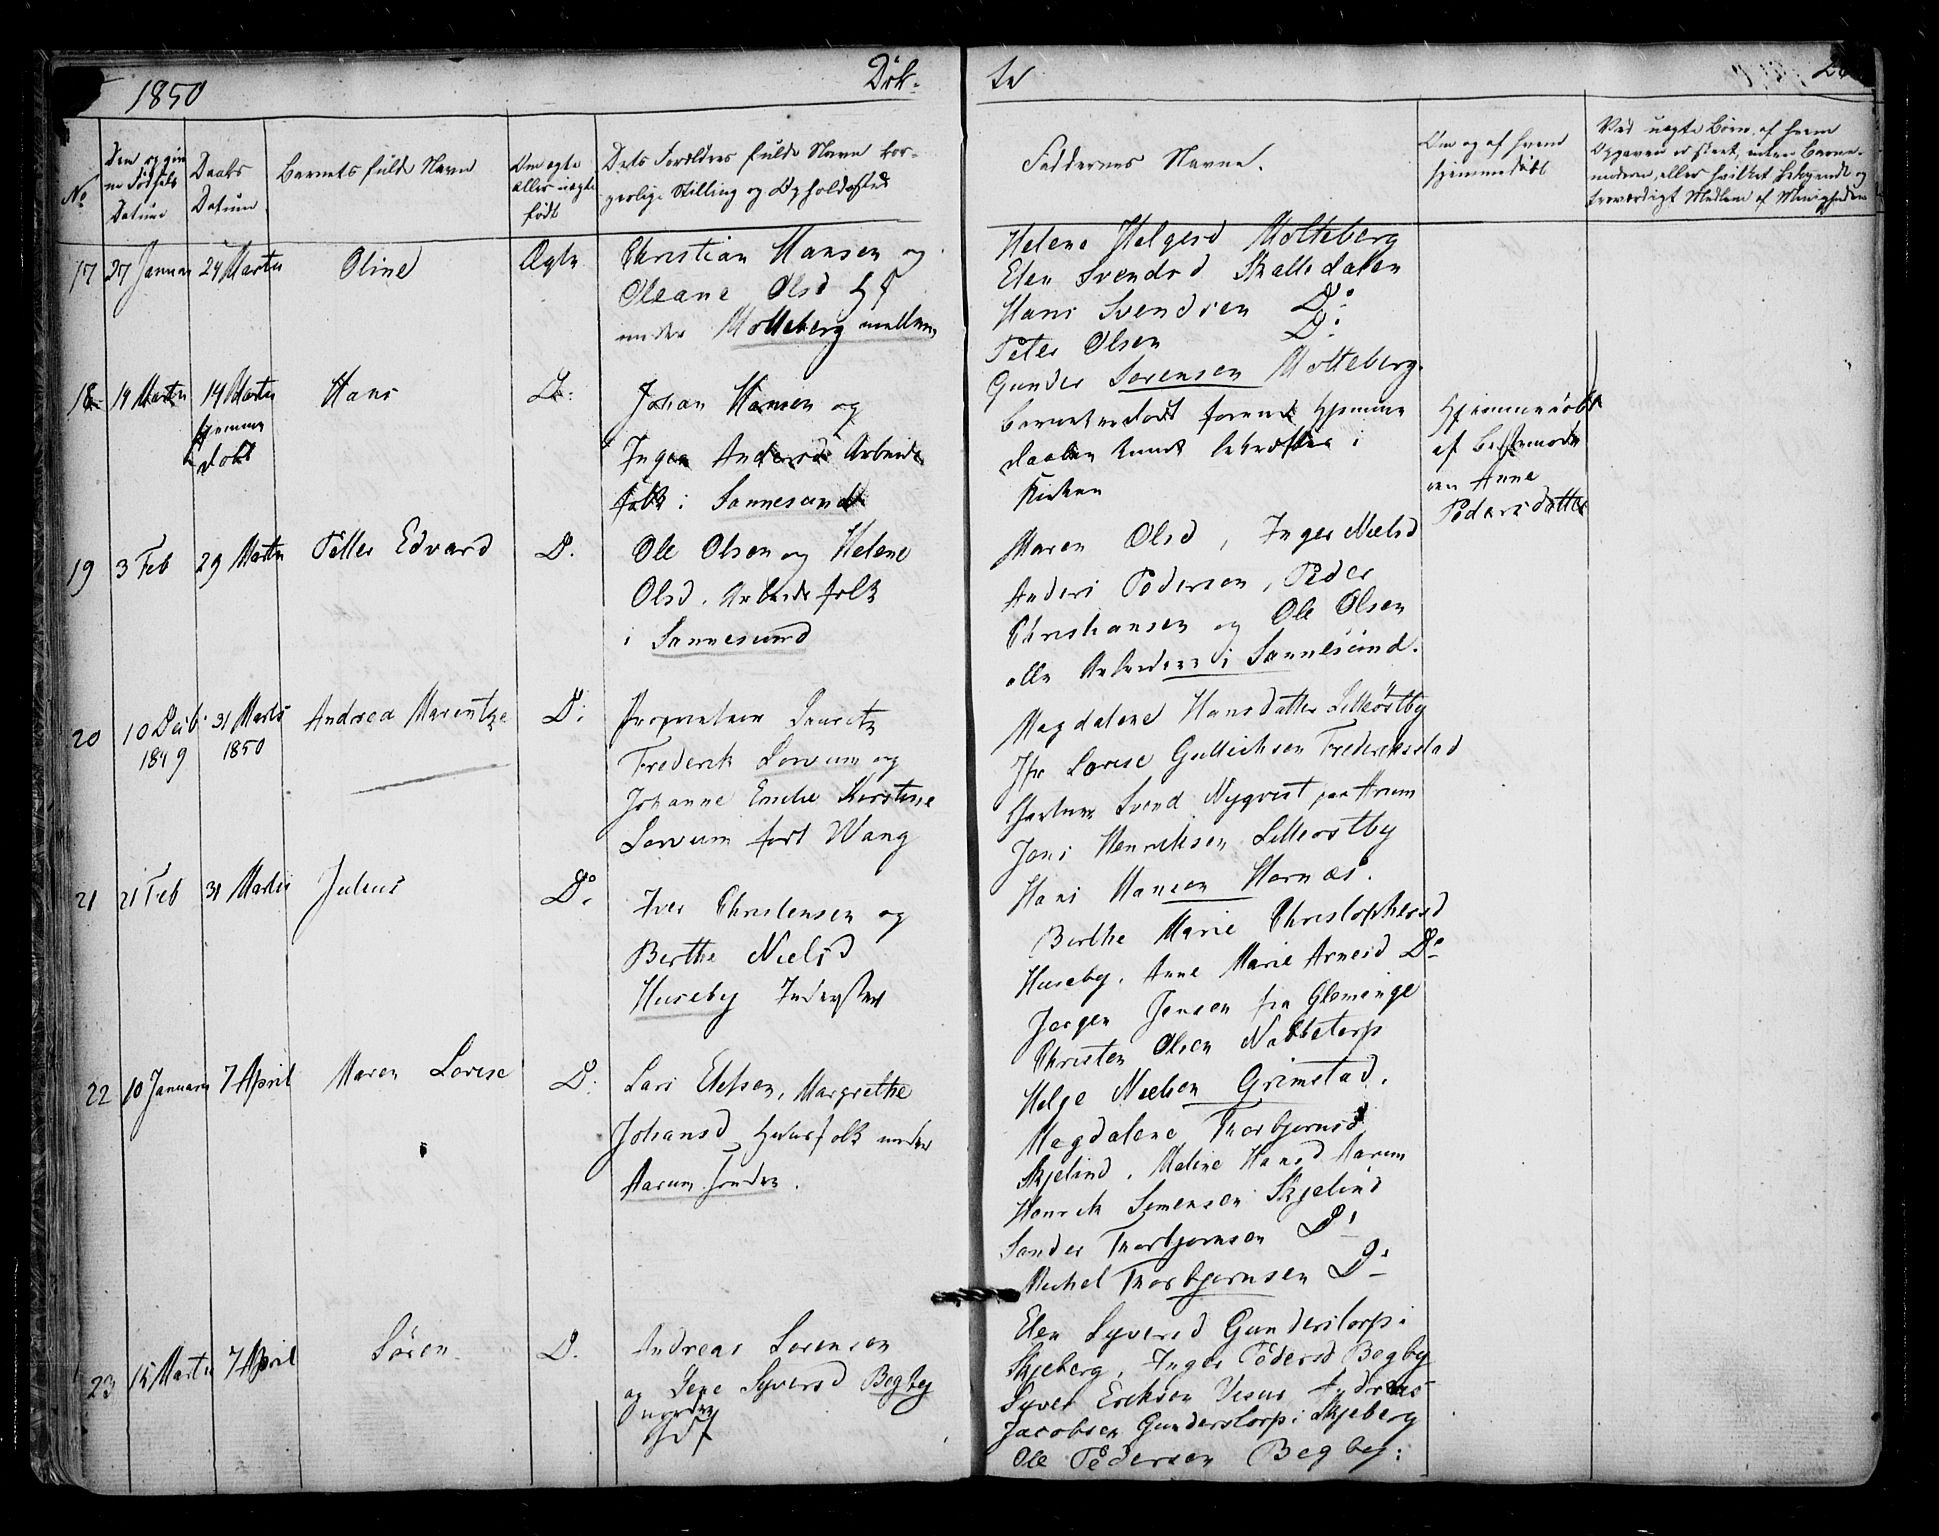 1850
Döb-
te
No
Den og gien
Födsels
Datum
Daabs
Datum
Barnets fulde Navn
Om ægte
eller uægte
född
Dets Forældres fulde Navn bor-
gerlige Stilling og Opholdssted
Faddernes Navne.
Om og af hvem
hjemmedöbt
Ved uægte Börn, af hvem
Opgaven er skeet, enten Barne-
moderen, eller hvilket bekjendt og
troværdigt Medlem af Menigheden
17
27 Januar
24 Marts
Oline
Ægte
Christian Hansen og
Oleane Olsd Hf
under Molteberg mellem
Helene Helgesd Molteberg
Elen Svendsd Skalledalen
Hans Svendsen Do
Peter Olsen Do
Gunder Sorensen Molteberg.
18
14 Marts
14 Marts
hjemme
döbt
Hans
D:
Johan Hansen og
Inger Andersd Arbeids
folk i Sannesund
Barnet er dödt forend Hjemme
daaben kunde bekræftes i
Kirken
Hjemmedöbt
af Bestemode
ren Anne
Pedersdatter
19
3 Feb
29 Marts
Petter Edvard
D.
Ole Olsen og Helene
Olsd. Arbeidsfolk
i Sannesund
Maren Olsd, Inger Nielsd
Anders Pedersen, Peder
Christiansen og Ole Olsen
alle Arbeidere i Sannesund.
20
10 Deeb
1849
31 Marts
1850
Andrea Marentze
D:
Proprietair Lauritz
Frederik Sorum og
Johanne Emilie Kirstine
Sorum fort Wang
Magdalene Hansdatter Lilleöstby
Jfr Lovise Gullichsen Frederiksstad
Gartner Svend Nyqvist paa Arum
Jens Henriksen Lilleostby
Hans Hansen Hornæs.
21
21 Feb
31 Marts
Julius
Do.
Iver Christensen og
Berthe Nielsd
Huseby Inderster
Berthe Marie Christophersd
Huseby. Anne Marie Arnesd Do
Jorgen Jensen fra Glemminge
Christen Olsen Nabbetorp
Helge Nielsen Grimstad.
22
10 Januar
7 April
Maren Lovise
D:
Lars Elefsen, Margrethe
Johansd Huusfolk under
Aarum Sondre.
Magdalene Thorbjornsd
Skjelind. Maline Hansd Aarum
Henrik Simensen Skjelind
Sander Thorbjornsen Do
Michel Thorbjornsen Do
23
15 Marts
7 April
Sören
D.
Andreas Sorensen
og Lene Syversd Begby
nordre
Hf
Elen Syversd Gunderstorp i
Skjeberg, Inger Pedersd Begby
Syver Eriksen Andreas
Jacobsen Gunderstorp i Skjeberg
Ole Pedersen Begby: